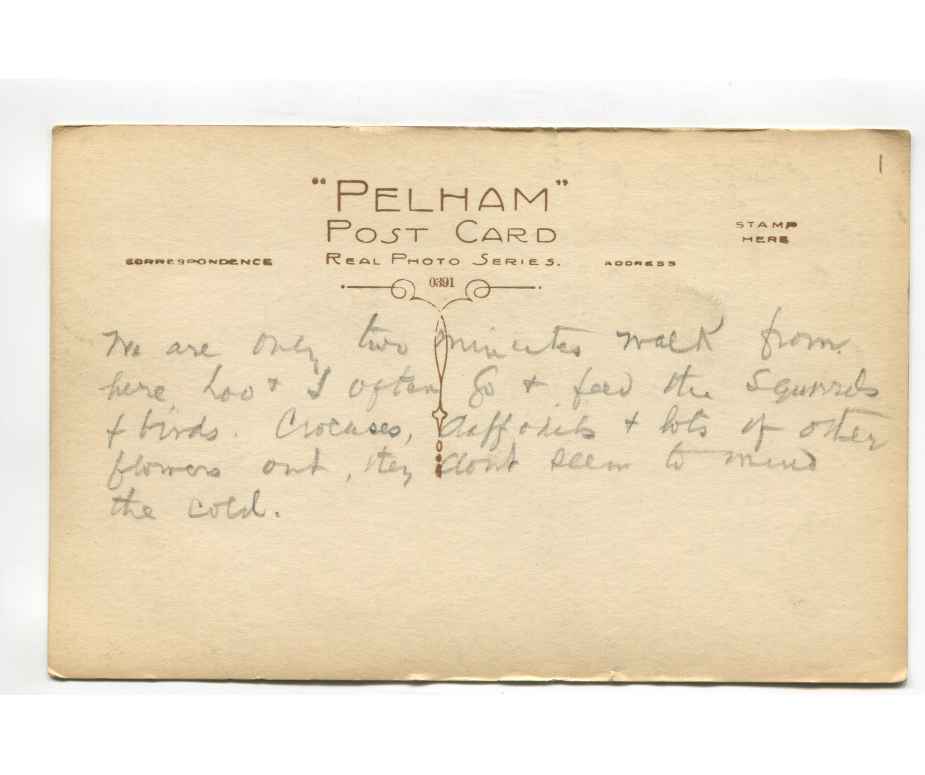 "PELHAM"
POST CARD
REAL PHOTO SERIES.
STAMP
HERE
CORRESPONDENCE
ADDRESS
0391
We are only two minutes walk from
here, Loo + I often go + feed the squirrels
+ birds. Crocuses, daffodils + lots of other
flowers out, they dont seem to mind
the cold.